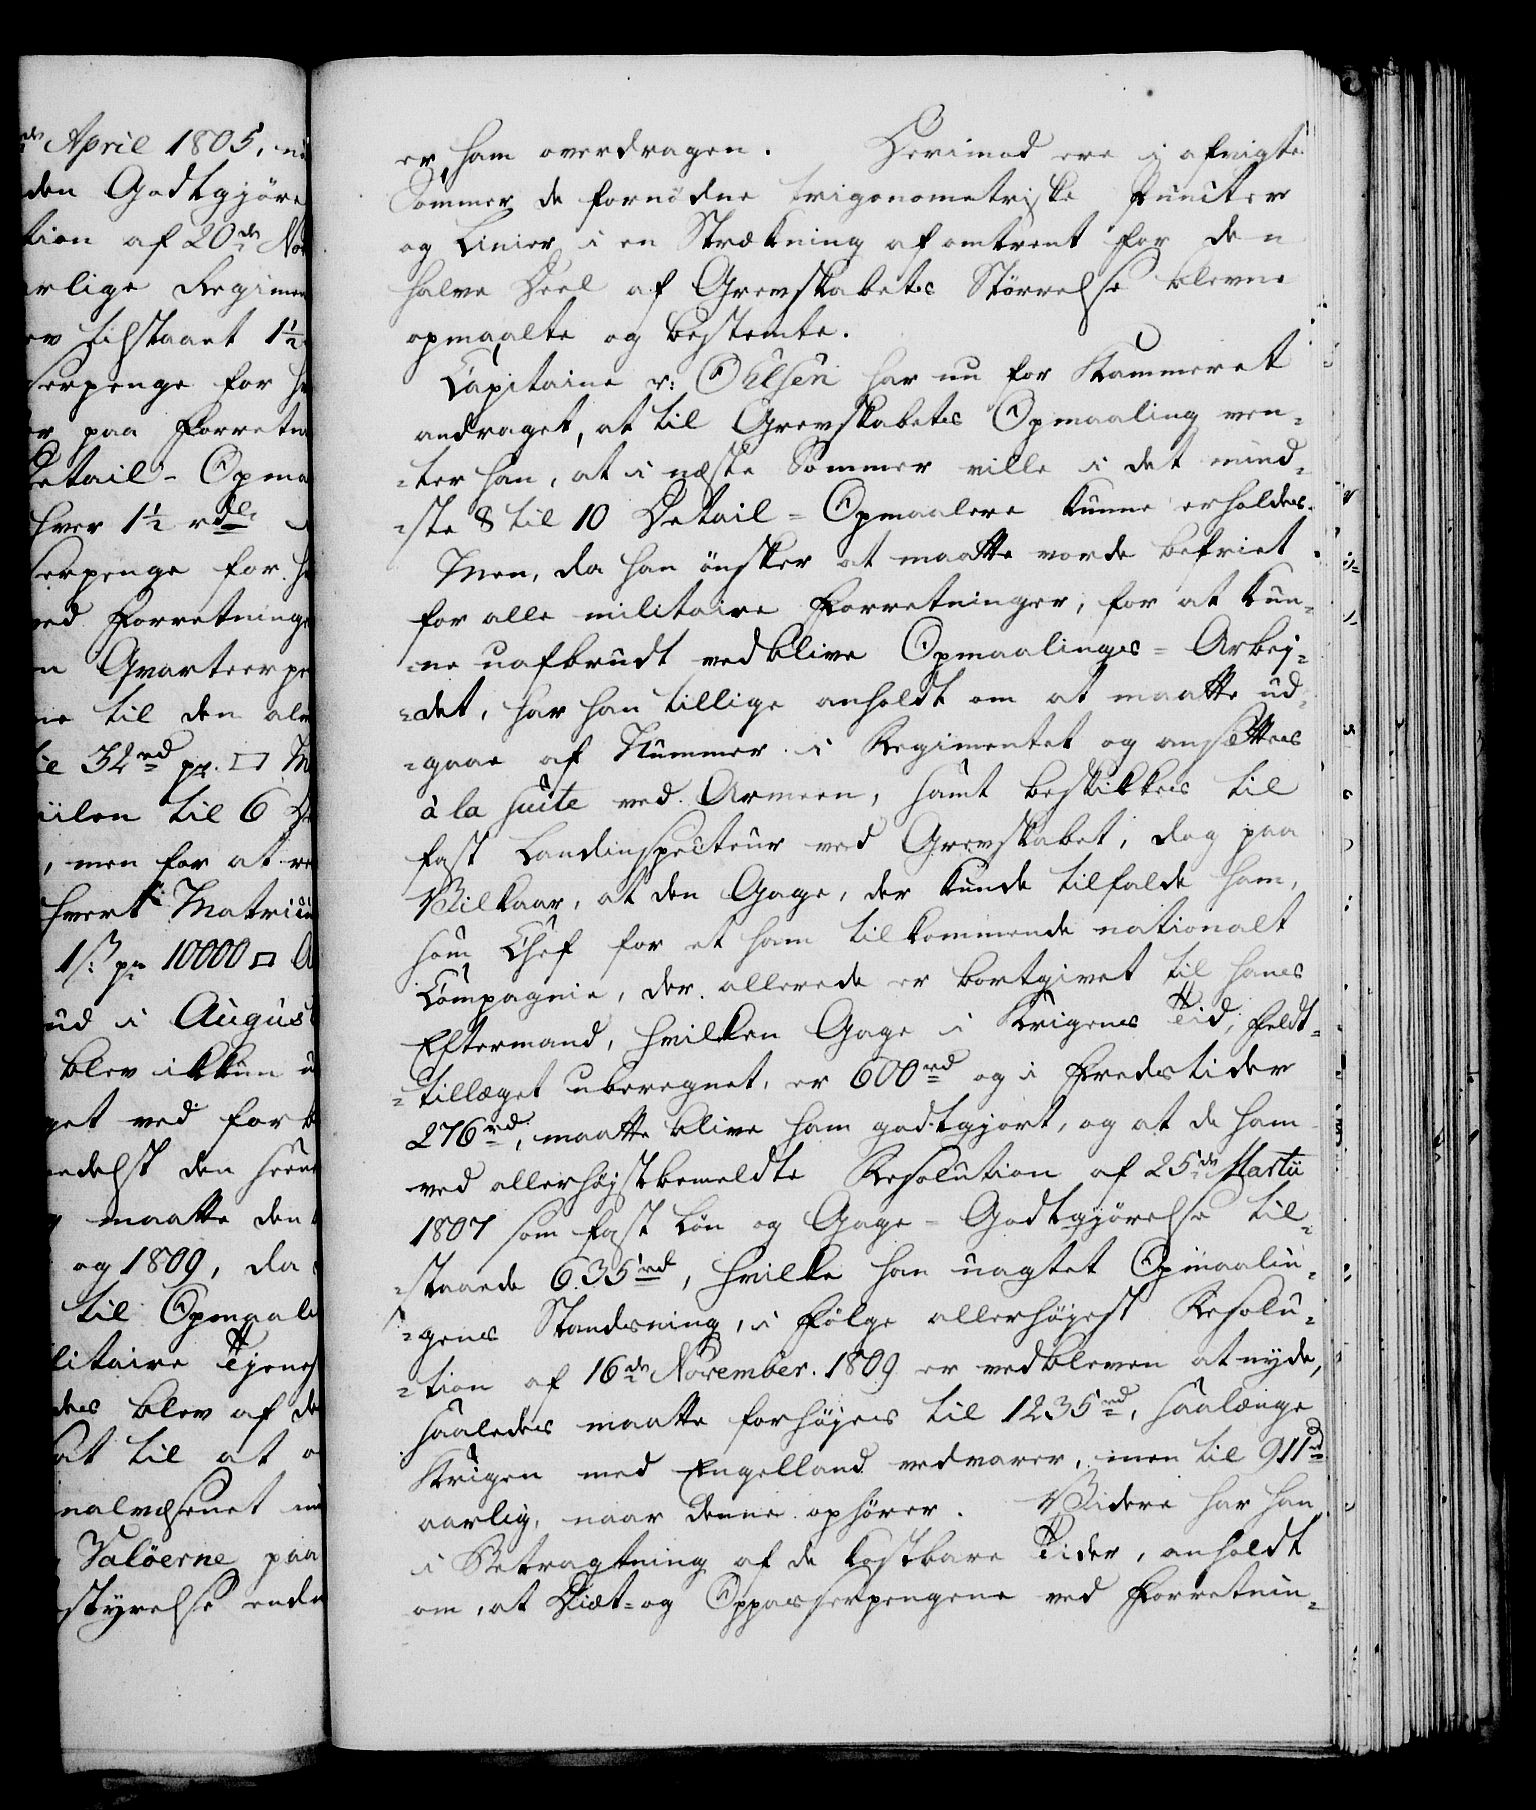 den April 1805, ni
den Godtgjöre
tion af 20de Nov
arlige Regimen
ev tilstaaet 1½
serpenge for h
er paa Forretn
Detail-Opma
hver 1½ rdlr
serpenge for h
ved Forretning
n Qvarteerpe
ne til den alm
le 32rd pr. □ M
iilen til 6 D
, men for at re
hvert Matricu
1/: pr 10000 □ A
ud i August
blev ikkun u
get ved forb
endelst den
maatte den
og 1809, da
til Opmaali
litaire Tjenes
des blev af de
sat til at o
nalvæsenet
Valöerne paa
styrelse end
er ham overdragen. Derimod ere i afvigte
Sommer de fornødne trigonometriske Puncter
og Linier i en Strækning af omtrent for den
halve Deel af Grevskabets Størrelse blevne
opmaalte og bestemte.
Capitaine v: Ohlsen har nu for Kammeret
andraget, at til Grevskabets Opmaaling ven-
-ter han, at i næste Sommer ville i det mind-
-ste 8 til 10 Detail-Opmaalere kunne erholdes.
Men, da han ønsker at maatte vorde befriet
for alle militaire Forretninger, for at kun-
-ne uafbrudt vedblive Opmaalings-Arbej-
-det, har han tillige anholdt om at maatte ud-
-gaae af Nummer i Regimentet og ansættes
à la suite ved Armeen, samt beskikkes til
fast Landinspecteur ved Grevskabet, dog paa
Vilkaar, at den Gage, der kunde tilfalde ham,
som Chef for et ham tilkommende nationalt
Compagnie, der allerede er bortgivet til hans
Eftermand, hvilken Gage i Krigens Tid, Feldt-
-tillæget uberegnet, er 600rd og i Fredstider
276rd, maatte blive ham godtgjort, og at de ham
ved allerhøjstbemeldte Resolution af 25de Martii
1807 som fast Løn og Gage-Godtgjørelse til-
-staaede 635rd, hvilke han uagtet Opmaalin-
-gens Standsning, i Følge allerhøjest Resolu-
-tion af 16de November 1809 er vedbleven at nyde,
saaledes maatte forhøjes til 1235rd, saalænge
Krigen med Engelland vedvarer, men til 911rd
aarlig, naar denne ophører. Videre har han
i Betragtning af de kostbare Tider, anholdt
om, at Diæt- og Oppasserpengene ved Forretnin-